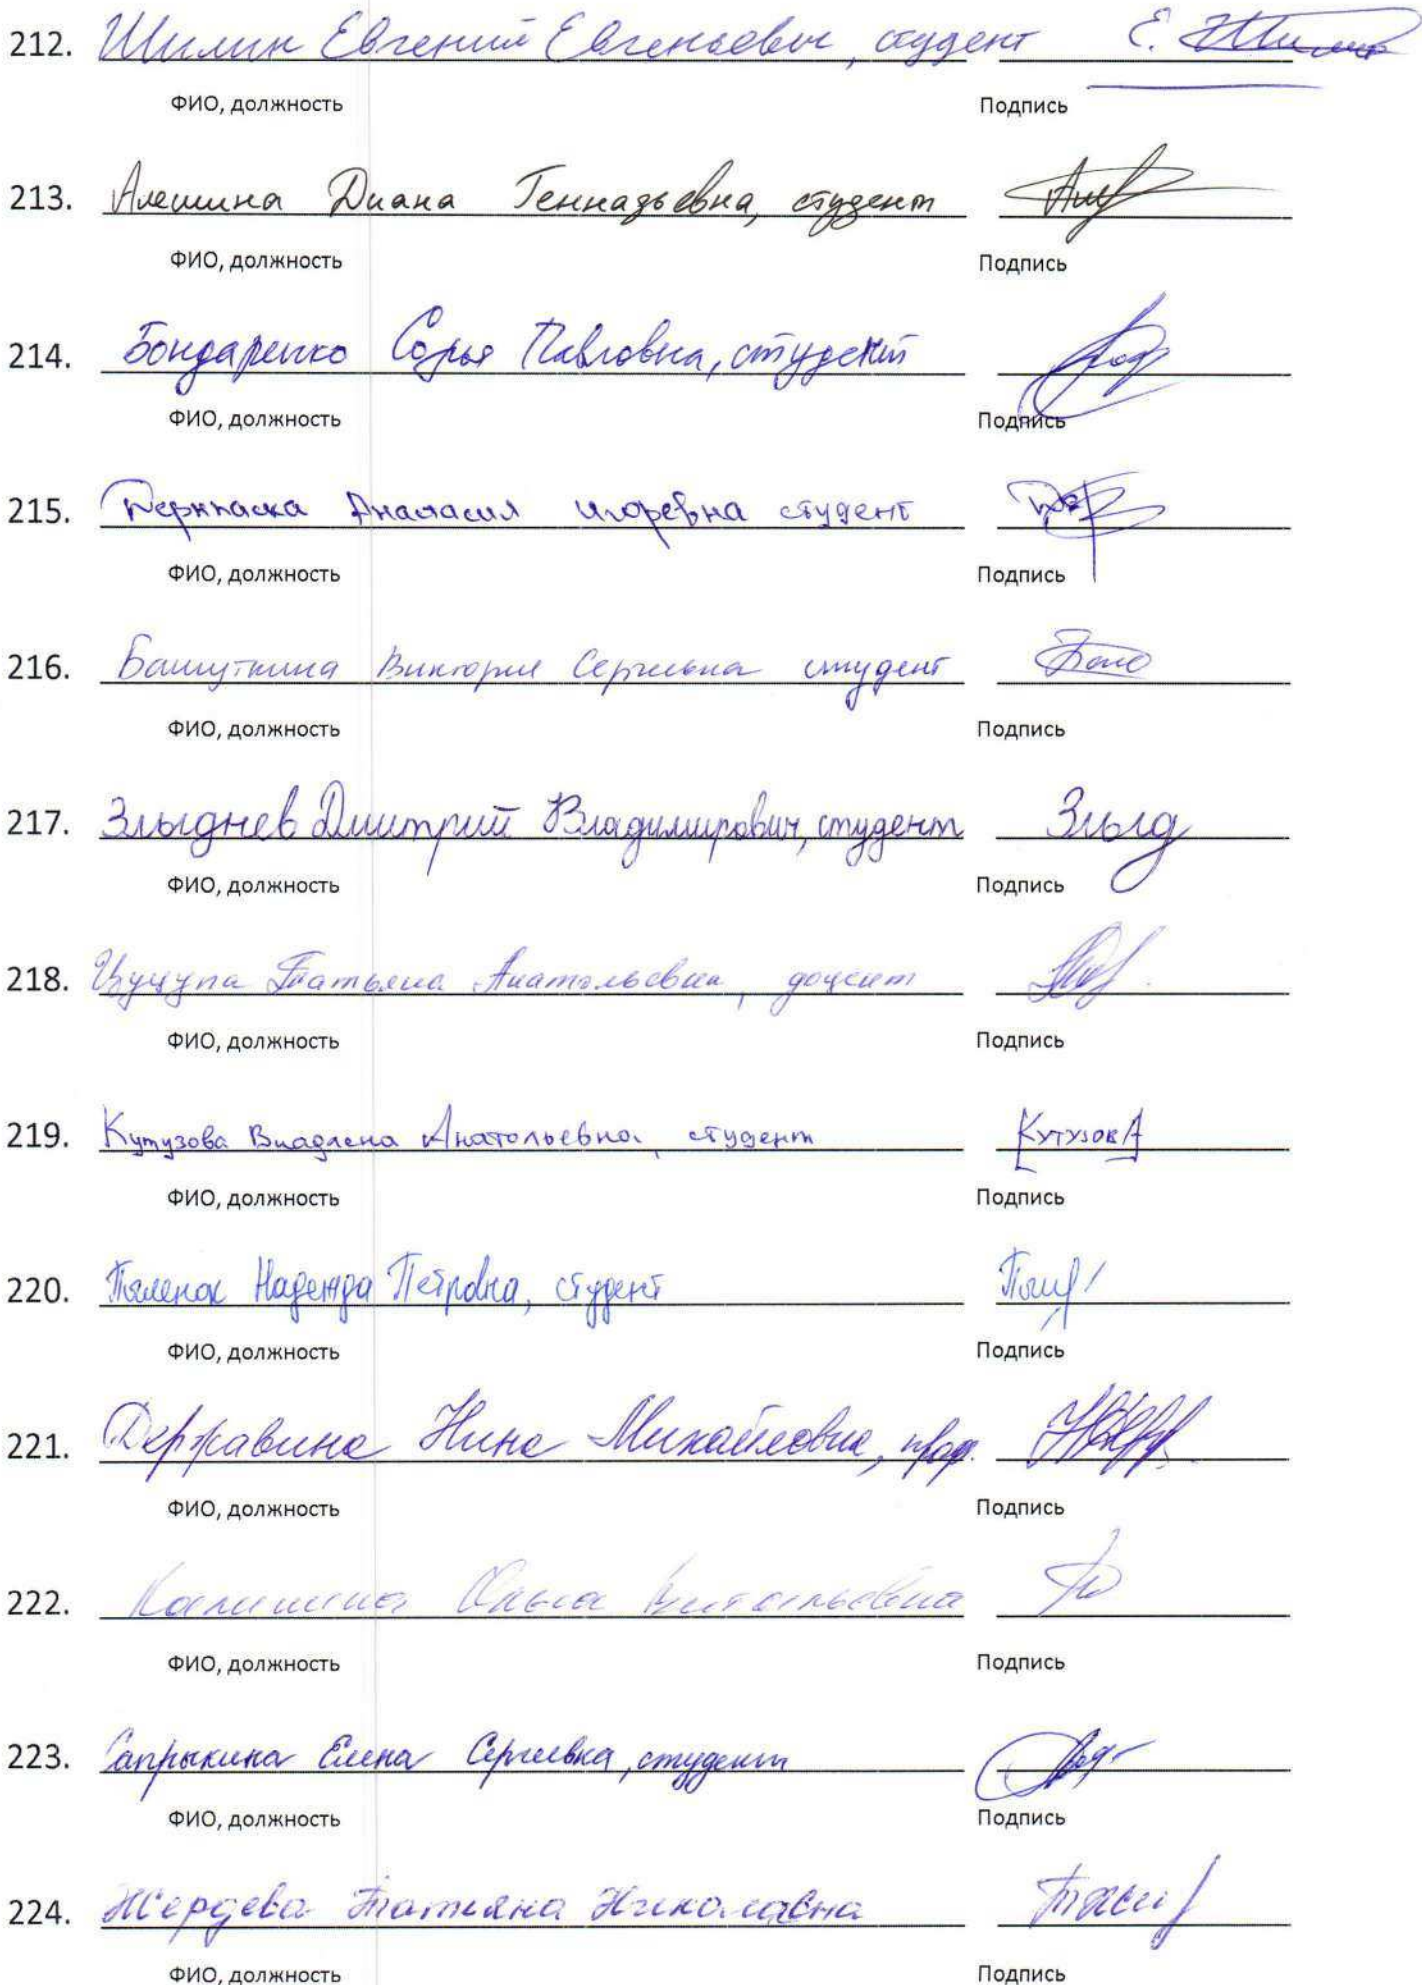 212. Шилин Евгений Евгеньевич, студент Е. Шилин
ФИО, должность Подпись
213. Алешина Диана Геннадьевна, студент
ФИО, должность Подпись
214. Бондаренко Софья Павловна, студент
ФИО, должность Подпись
215. Дерипаска Анастасия Игоревна студент
ФИО, должность Подпись
216. Башуткина Виктория Сергеевна студент
ФИО, должность Подпись
217. Злыднев Дмитрий Владимирович, студент Злыд
ФИО, должность Подпись
218. Цуцупа Татьяна Анатольевна, доцент
ФИО, должность Подпись
219. Кутузова Владлена Анатольевна, студент КутузовА
ФИО, должность Подпись
220. Надежда Петровна, студент
ФИО, должность Подпись
221. Державина Нина Михайловна, проф.
ФИО, должность Подпись
222. Калинина Ольга Витальевна
ФИО, должность Подпись
223. Сапрыкина Елена Сергеевна, студент
ФИО, должность Подпись
224. Жердева Татьяна Николаевна
ФИО, должность Подпись